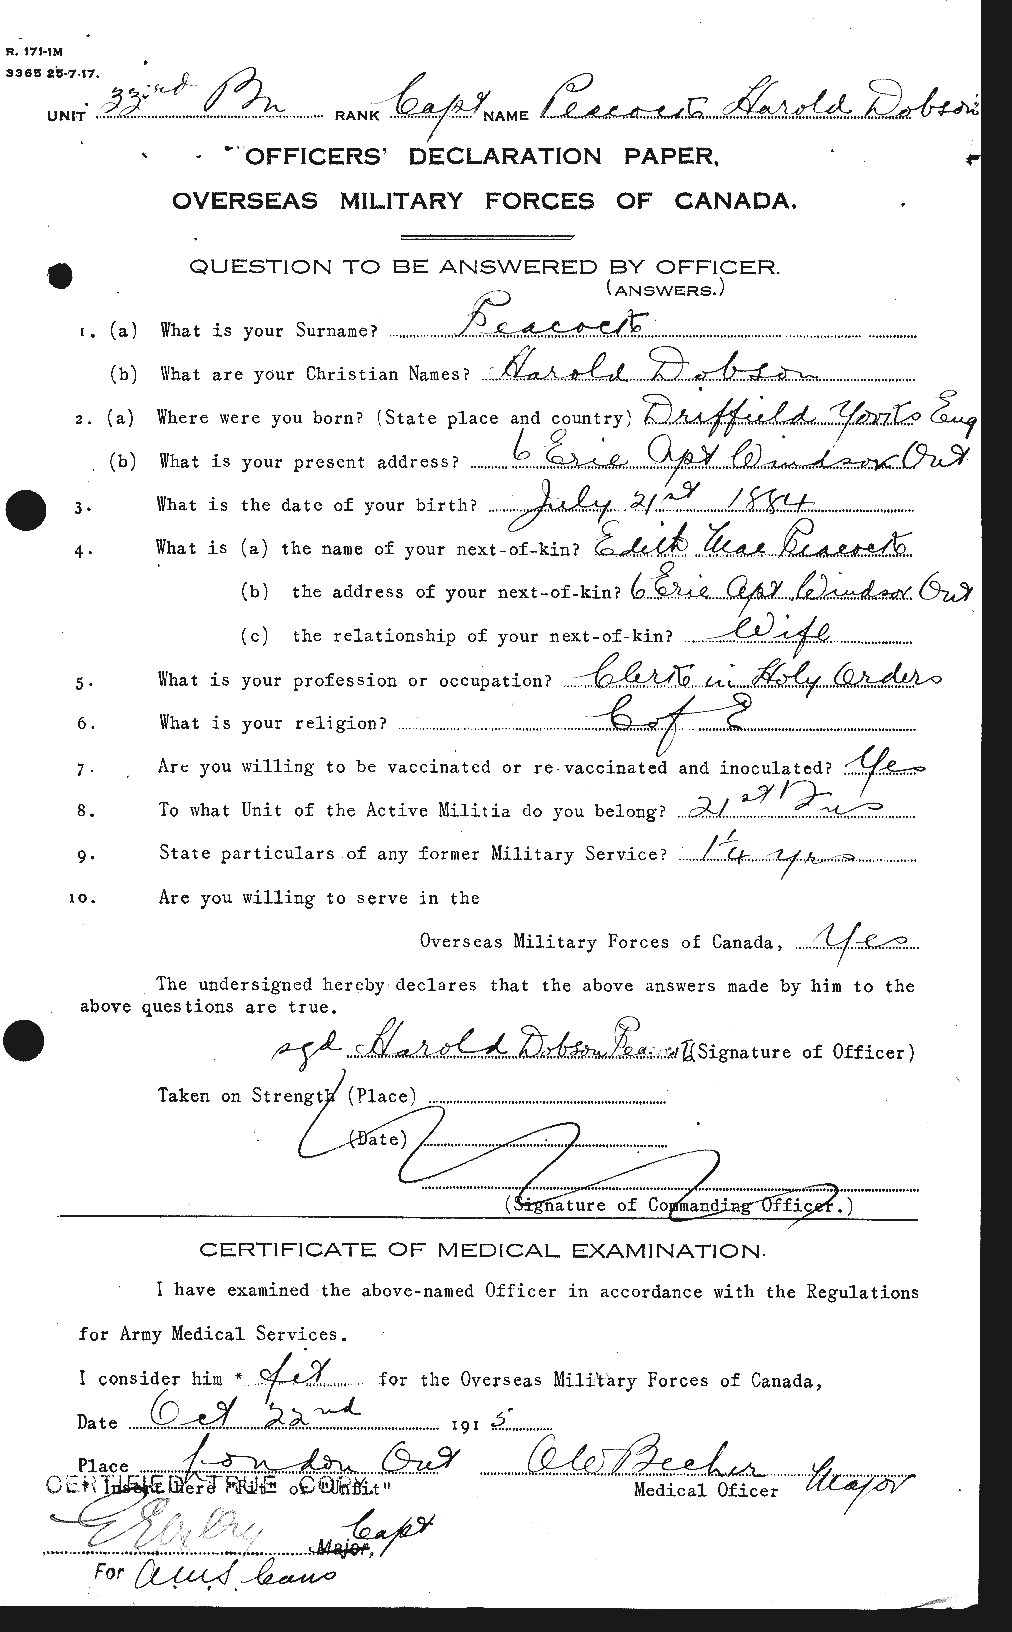 R. 171-1M
3365 25-7-17.
UNIT 33rd Bn RANK Capt NAME Peacock Harold Dobson
OFFICERS' DECLARATION PAPER,
OVERSEAS MILITARY FORCES OF CANADA.
QUESTION TO BE ANSWERED BY OFFICER.
(ANSWERS.)
1. (a) What is your Surname? Peacock
(b) What are your Christian Names? Harold Dobson
2. (a) Where were you born? (State place and country) Driffield Yorks Eng
(b) What is your present address? 6 Erie Apt Windsor Ont
3. What is the date of your birth? July 21st 1884
4. What is (a) the name of your next-of-kin? Edith Mae Peacock
(b) the address of your next-of-kin? 6 Erie Apt Windsor Ont
(c) the relationship of your next-of-kin? Wife
5. What is your profession or occupation? Clerk in Holy Orders
6. What is your religion? C of E
7. Are you willing to be vaccinated or re-vaccinated and inoculated? Yes
8. To what Unit of the Active Militia do you belong? 21st Fus
9. State particulars of any former Military Service? 1¼ yrs
10. Are you willing to serve in the
Overseas Military Forces of Canada, Yes
The undersigned hereby declares that the above answers made by him to the
above questions are true.
sgd Harold Dobson Peacock (Signature of Officer)
Taken on Strength (Place)
(Date)
(Signature of Commanding Officer.)
CERTIFICATE OF MEDICAL EXAMINATION.
I have examined the above-named Officer in accordance with the Regulations
for Army Medical Services.
I consider him * fit for the Overseas Military Forces of Canada,
Date Oct 22nd 1915
Place London Ont
CERTIFIED TRUE COPY
* Insert here "Fit" or "Unfit"
Beecher Major
Medical Officer
Capt
Major,
For